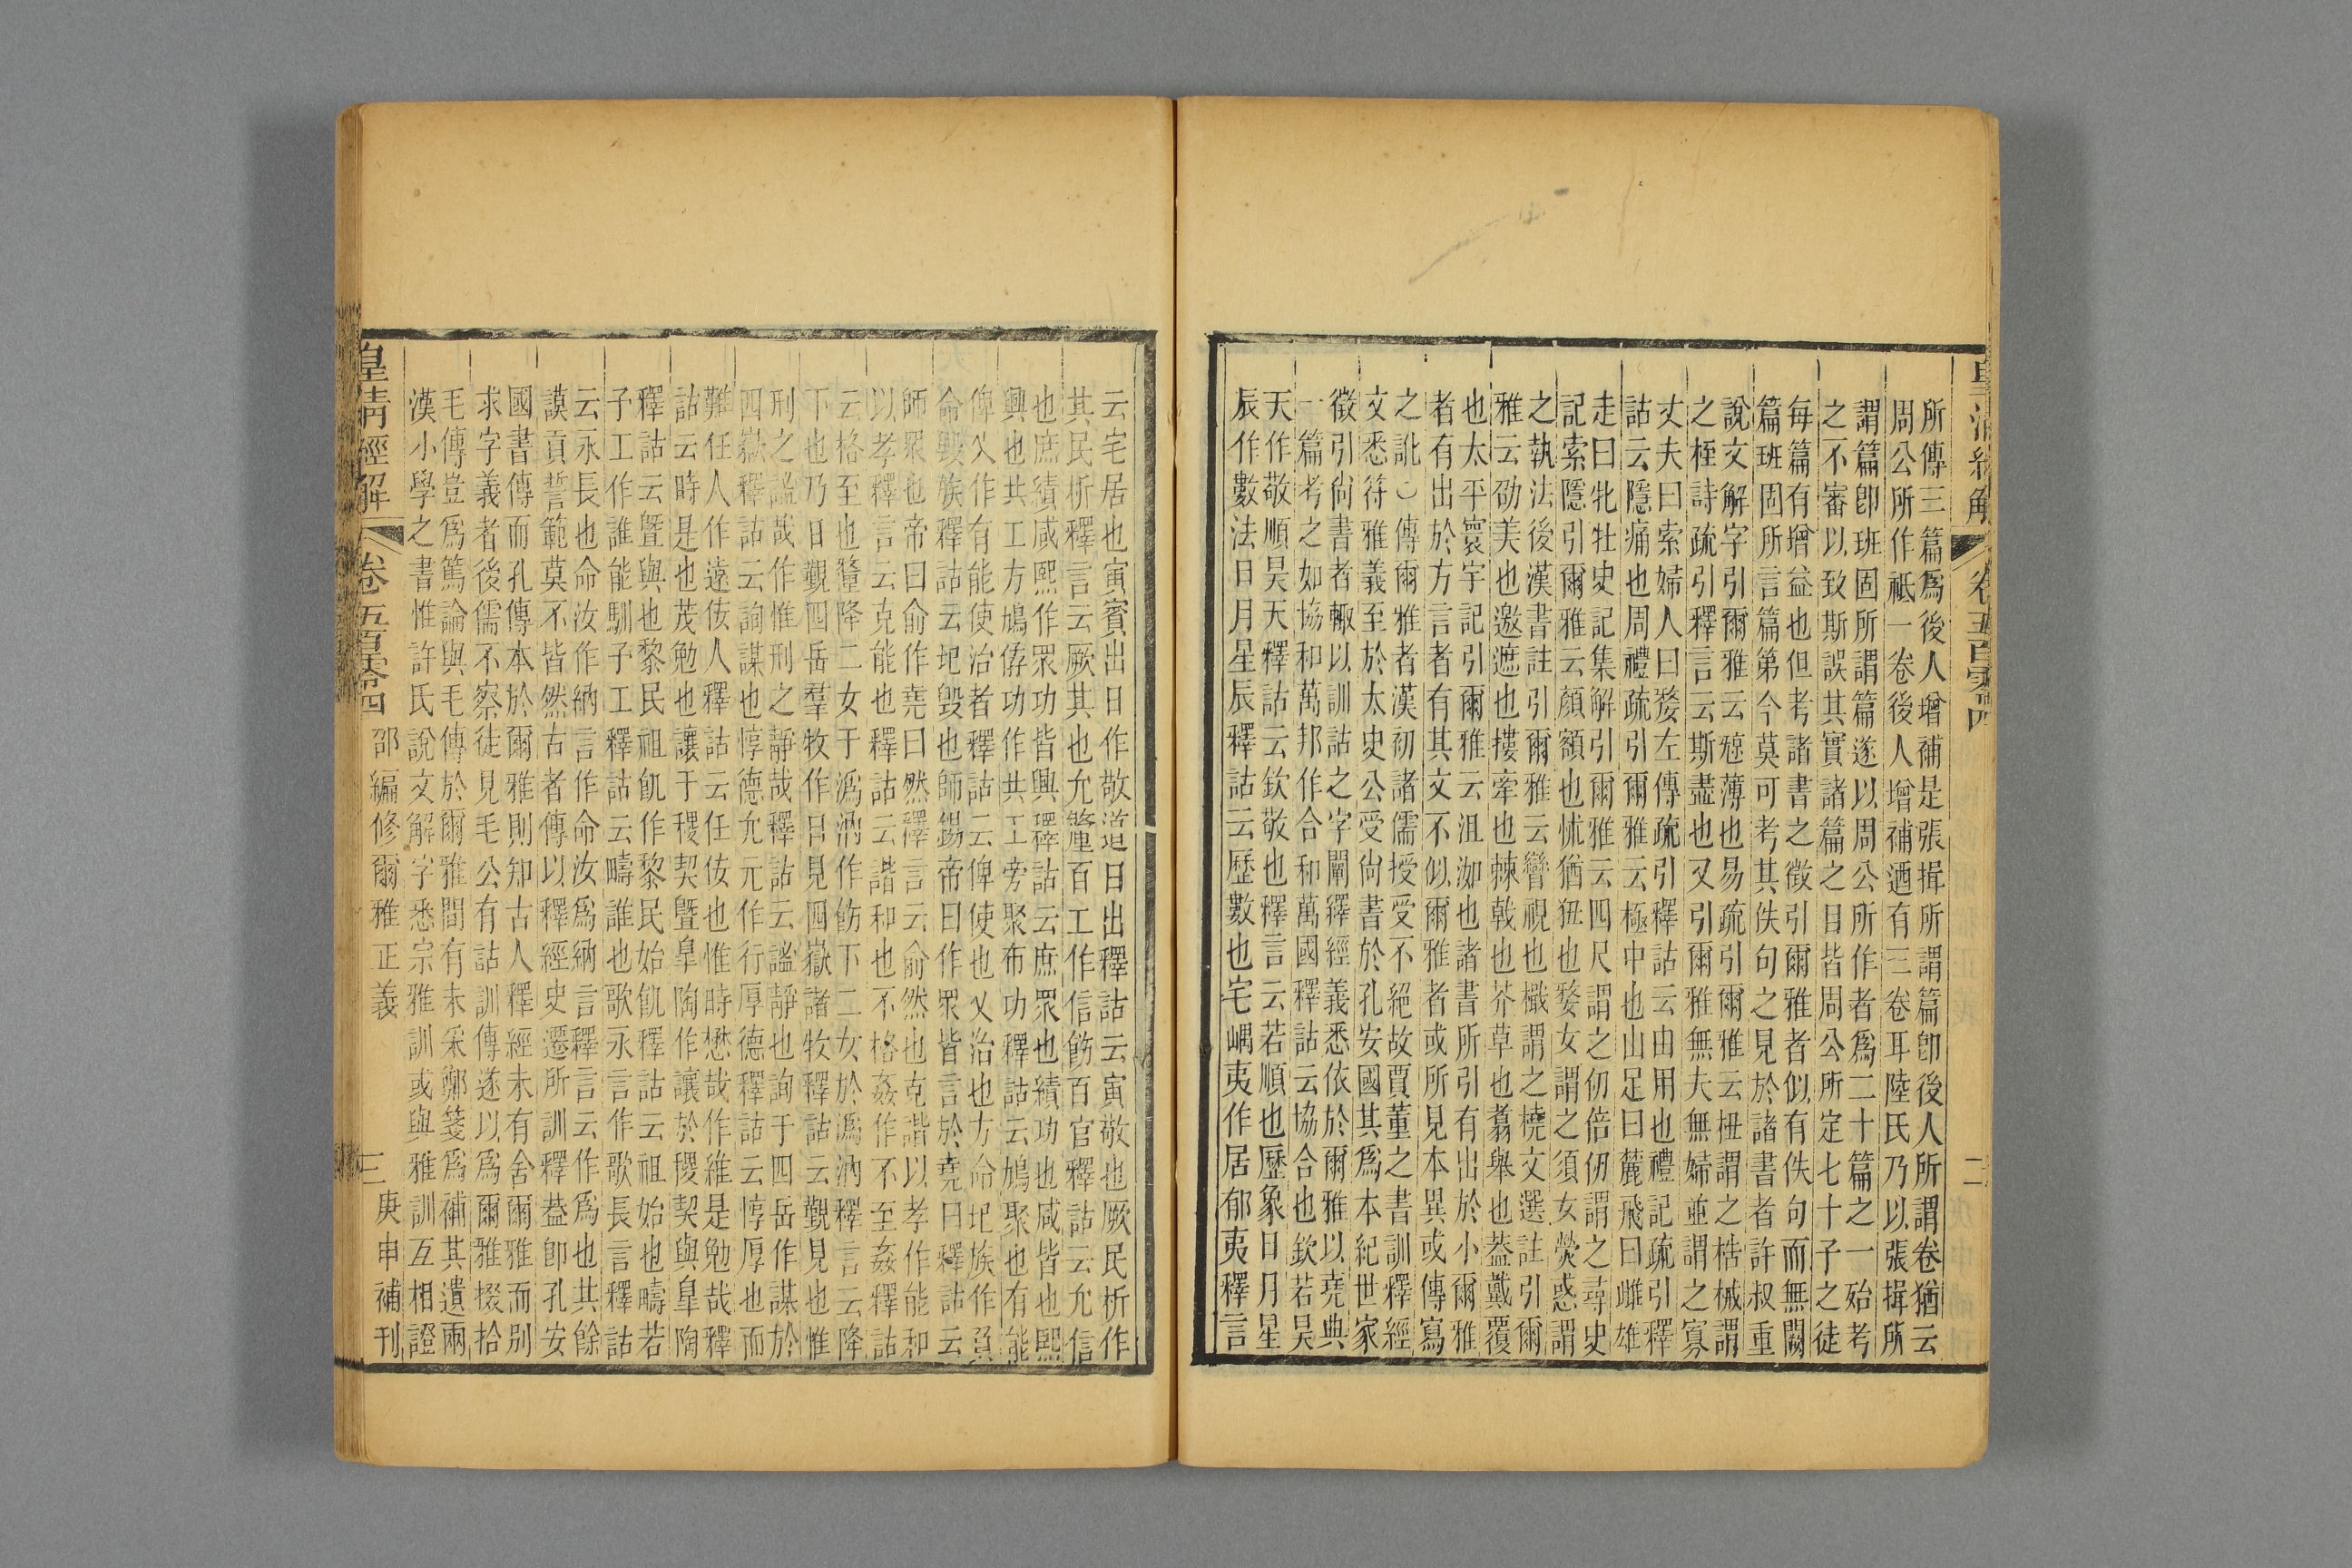 皇清經解 卷五百零四 二
所傳三篇爲後人增補是張揖所謂篇卽後人所謂卷猶云
周公所作祗一卷後人增補迺有三卷耳陸氏乃以張揖所
謂篇卽班固所謂篇遂以周公所作者爲二十篇之一始考
之不審以致斯誤其實諸篇之目皆周公所定七十子之徒
每篇有增益也但考諸書之徵引爾雅者似有佚句而無闕
篇班固所言篇第今莫可考其佚句之見於諸書者許叔重
說文解字引爾雅云㹁薄也易疏引爾雅云杻謂之梏械謂
之桎詩疏引釋言云斯盡也又引爾雅無夫無婦並謂之寡
丈夫曰索婦人曰婺左傳疏引釋詁云由用也禮記疏引釋
詁云隱痛也周禮疏引爾雅云極中也山足曰麓飛曰雌雄
走曰牝牡史記集解引爾雅云四尺謂之仞倍仞謂之尋史
記索隱引爾雅云顏額也怵猶狃也婺女謂之須女熒惑謂
之執法後漢書註引爾雅云矕視也檝謂之橈文選註引爾
雅云劭美也邀遮也摟牽也棘戟也芥草也翥舉也葢戴覆
也太平寰宇記引爾雅云沮洳也諸書所引有出於小爾雅
者有出於方言者有其文不似爾雅者或所見本異或傳寫
之訛也傳爾雅者漢初諸儒授受不絕故賈董之書訓釋經
文悉符雅義至於太史公受尙書於孔安國其爲本紀世家
徵引尙書者輙以訓詁之字闡繹經義悉依於爾雅以堯典
一篇考之如協和萬邦作合和萬國釋詁云協合也欽若昊
天作敬順昊天釋詁云欽敬也釋言云若順也歷象日月星
辰作數法日月星辰釋詁云歷數也宅嵎夷作居郁夷釋言
云宅居也寅賓出日作敬道日出釋詁云寅敬也厥民析作
其民析釋言云厥其也允釐百工作信飭百官釋詁云允信
也庶績咸熙作眾功皆興釋詁云庶眾也績功也咸皆也熙
興也共工方鳩僝功作共工旁聚布功釋詁云鳩聚也有能
俾乂作有能使治者釋詁云俾使也乂治也方命圮族作負
命毀族釋詁云圮毀也師錫帝曰作眾皆言於堯曰釋詁云
師眾也帝曰俞作堯曰然釋言云俞然也克諧以孝作能和
以孝釋言云克能也釋詁云諧和也不格姦作不至姦釋詁
云格至也釐降二女于溈汭作飭下二女於溈汭釋言云降
下也乃日覲四岳羣牧作日見四嶽諸牧釋詁云覲見也惟
刑之謐哉作惟刑之靜哉釋詁云謐靜也詢于四岳作謀於
四嶽釋詁云詢謀也惇德允元作行厚德釋詁云惇厚也而
難任人作遠佞人釋詁云任佞也惟時懋哉作維是勉哉釋
詁云時是也茂勉也讓于稷契曁皐陶作讓於稷契與皐陶
釋詁云曁與也黎民祖飢作黎民始飢釋詁云祖始也疇若
子工作誰能馴子工釋詁云疇誰也歌永言作歌長言釋詁
云永長也命汝作納言作命汝爲納言釋言云作爲也其餘
謨貢誓範莫不皆然古者傳以釋經史遷所訓釋葢卽孔安
國書傳而孔傳本於爾雅則知古人釋經未有舍爾雅而別
求字義者後儒不察徒見毛公有詁訓傳遂以爲爾雅掇拾
毛傳豈爲篤論與毛傳於爾雅間有未采鄭箋爲補其遺兩
漢小學之書惟許氏說文解字悉宗雅訓或與雅訓互相證
皇清經解 卷五百零四 邵編修爾雅正義 三 庚申補刊